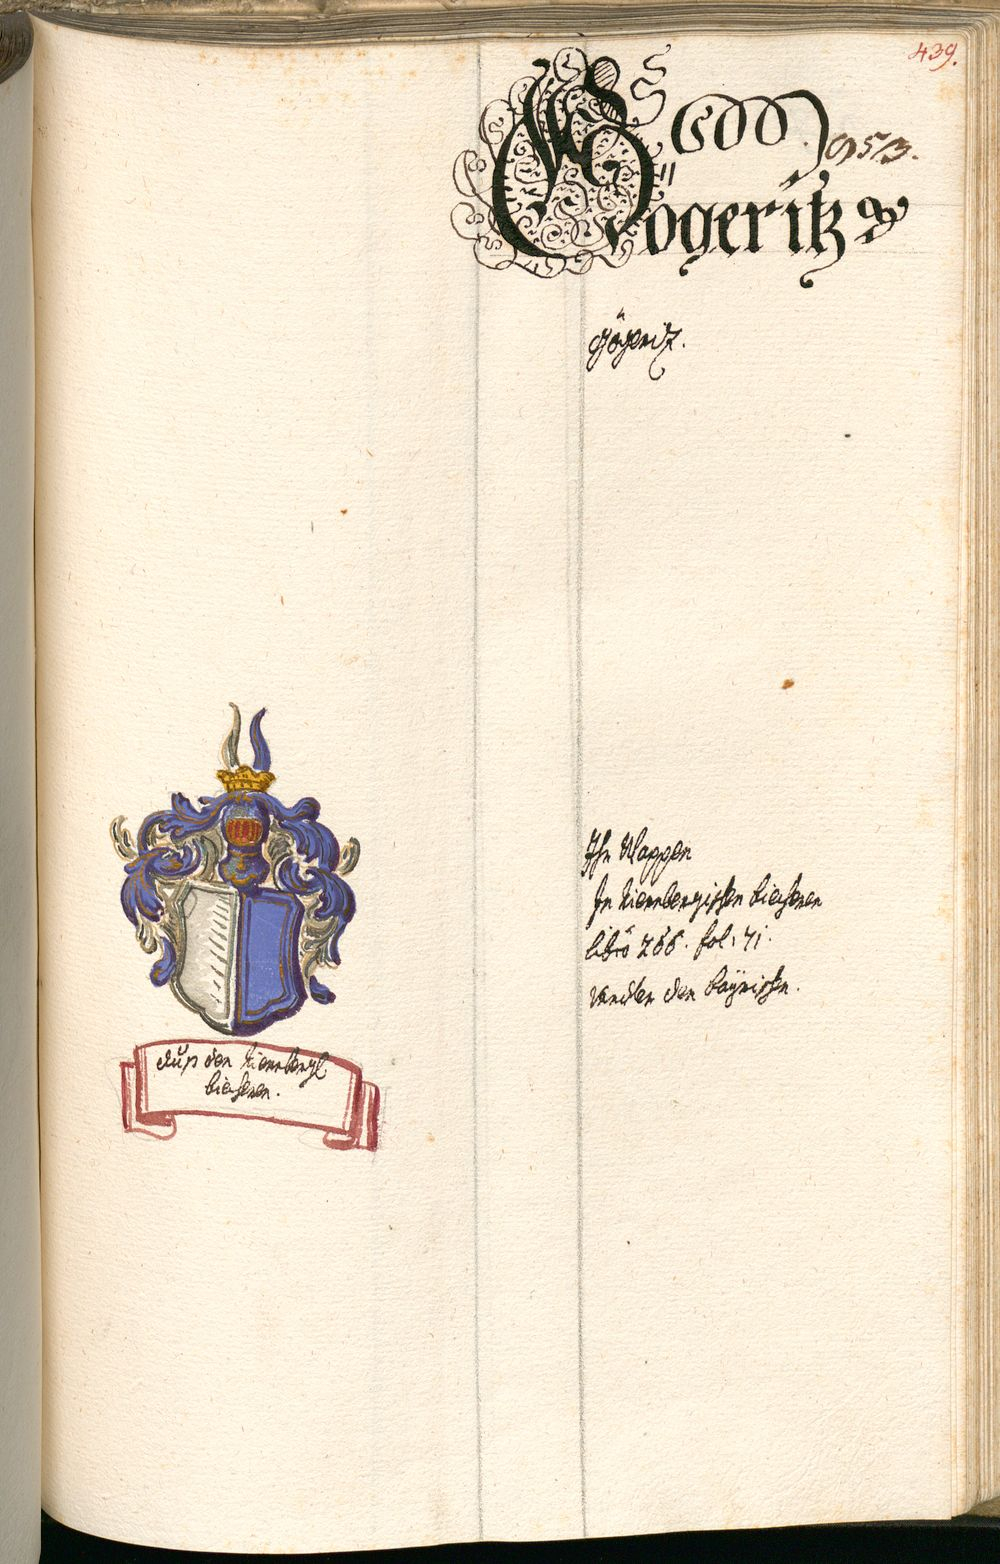 439.
953.
Gögeritz
Gögeritz.
Ihr Wappen
In Niernbergischen biechern
librô 266. fol: 71.
vnder den bayrischen.
Auß den Niernbergl.
biechern.